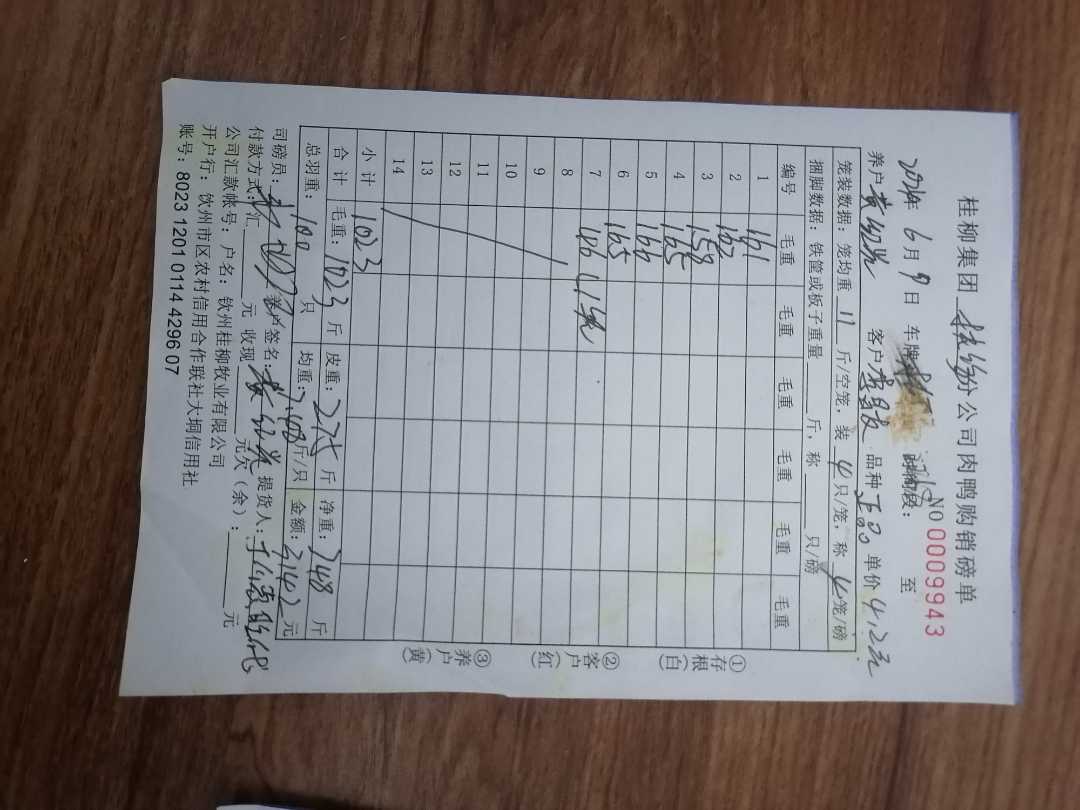 桂柳集团 公司肉鸭购销磅单
NO 0009943
2024年 6月 9日 车牌 时间段: 至
养户 黄 客户 品种 正品 单价 4.2元
笼装数据:笼均重 11 斤/空笼,装 4 只/笼,称 4 笼/磅
捆脚数据:铁筐或板子重量 斤,称 只/磅
编号 毛重 毛重 毛重 毛重 毛重 毛重
1 161
2 162
3 158
4 165
5 166
6 165
7 46 4/1笼
8
9
10
11
12
13
14
小计 1023
合计 毛重:1023 斤 皮重:275 斤 净重:748 斤
总羽重:100 只 均重:7.48 斤/只 金额:3142 元
司磅员: 养户签名:黄 提货人:
付款方式:汇 元 收现 元欠(余): 元
公司汇款帐号:户名:钦州桂柳牧业有限公司
开户行:钦州市区农村信用合作联社大垌信用社
账号:8023 1201 0114 4296 07
①存根(白)
②客户(红)
③养户(黄)